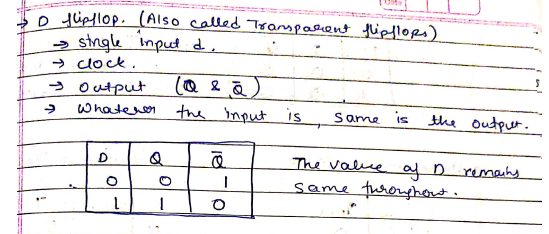 → D flipflop. (Also called Transparent flipflops)
→ single input d.
→ clock.
→ output (Q & Q̅)
→ whatever the input is, same is the output.
D Q Q̅
0 0 1
1 1 0
The value of D remains
same throughout.